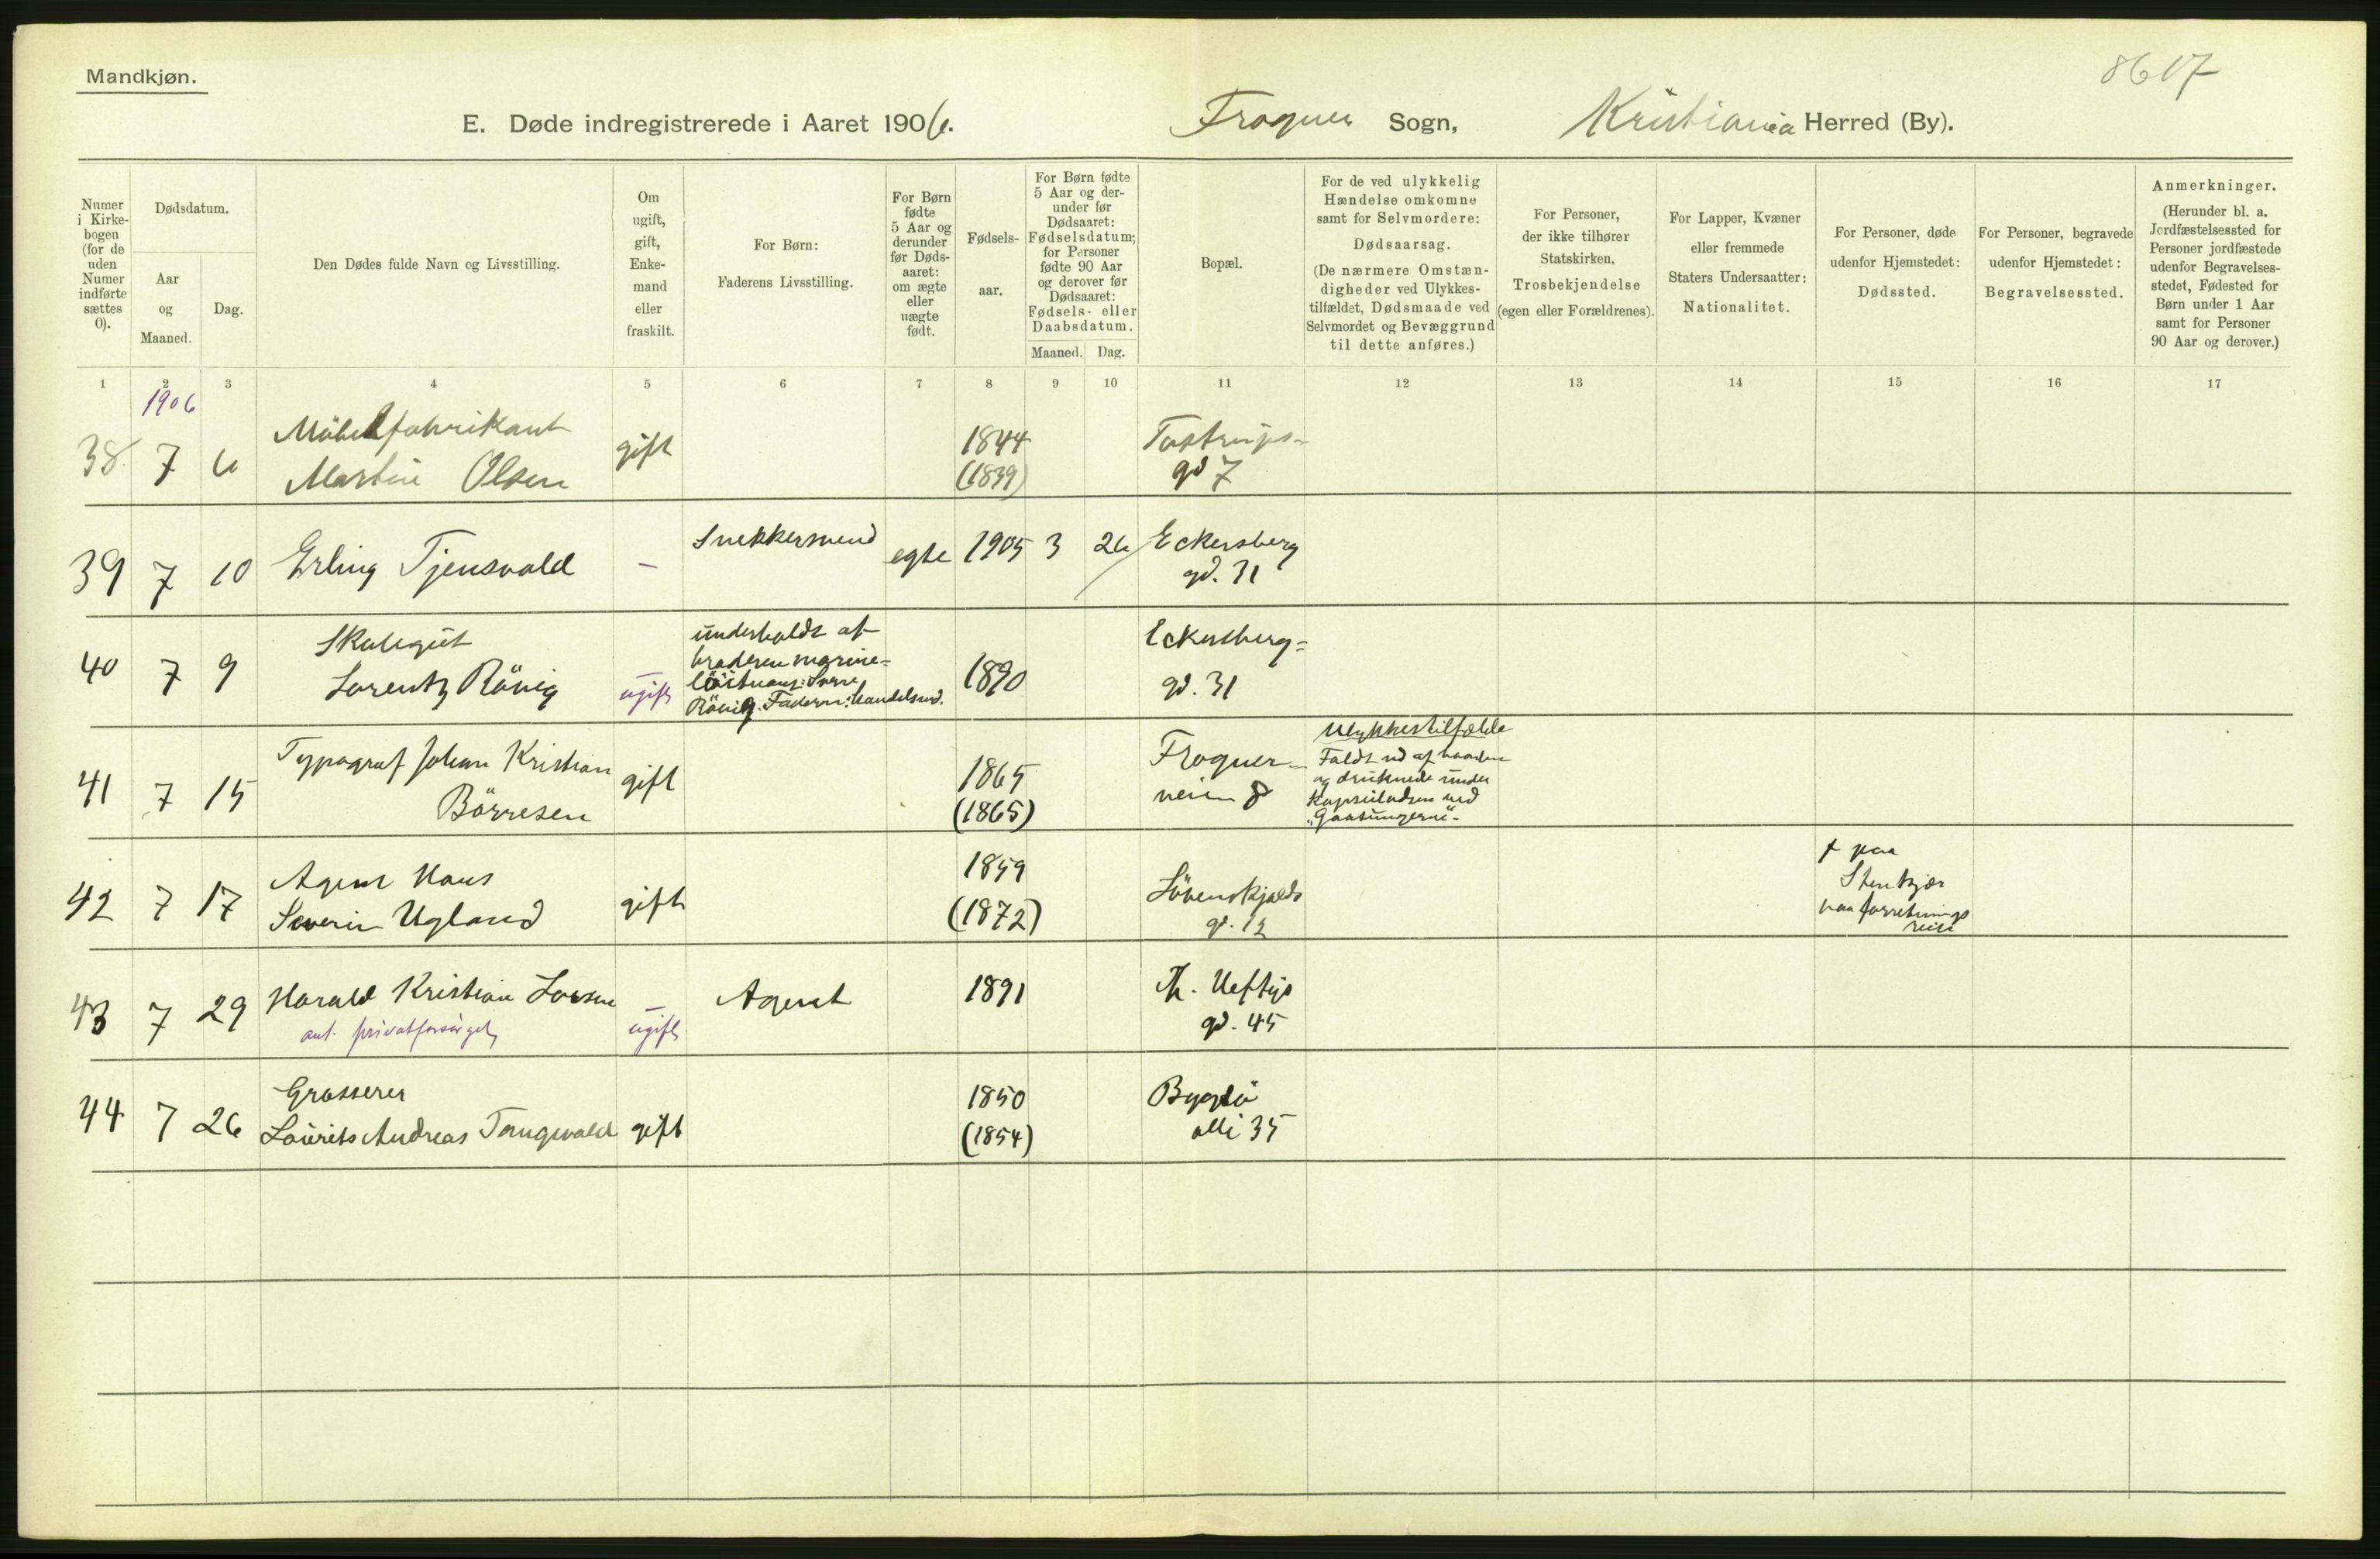 Mandkjøn.
8617
E. Døde indregistrerede i Aaret 1906.
Frogner Sogn,
Kristiania Herred (By).
Numer
i Kirke-
bogen
(for de
uden
Numer
indførte
sættes
0).
Dødsdatum.
Aar
og
Maaned.
Dag.
Den Dødes fulde Navn og Livsstilling.
Om
ugift,
gift,
Enke-
mand
eller
fraskilt.
For Børn:
Faderens Livsstilling.
For Børn
fødte
5 Aar og
derunder
før Døds-
aaret:
om ægte
eller
uægte
født.
Fødsels-
aar.
For Børn fødte
5 Aar og der-
under før
Dødsaaret:
Fødselsdatum;
for Personer
fødte 90 Aar
og derover før
Dødsaaret:
Fødsels- eller
Daabsdatum.
Maaned. Dag.
Bopæl.
For de ved ulykkelig
Hændelse omkomne
samt for Selvmordere:
Dødsaarsag.
(De nærmere Omstæn-
digheder ved Ulykkes-
tilfældet, Dødsmaade ved
Selvmordet og Bevæggrund
til dette anføres.)
For Personer,
der ikke tilhører
Statskirken,
Trosbekjendelse
(egen eller Forældrenes).
For Lapper, Kvæner
eller fremmede
Staters Undersaatter:
Nationalitet.
For Personer, døde
udenfor Hjemstedet:
Dødssted.
For Personer, begravede
udenfor Hjemstedet:
Begravelsessted.
Anmerkninger.
(Herunder bl. a.
Jordfæstelsessted for
Personer jordfæstede
udenfor Begravelses-
stedet, Fødested for
Børn under 1 Aar
samt for Personer
90 Aar og derover.)
1 2 3 4 5 6 7 8 9 10 11 12 13 14 15 16 17
1906
38 7 6
Möbelfabrikant
Martin Olsen
gift
1844
(1839)
Tostrups-
gd 7
39 7 10 Erling Tjensvold -
Snekkersvend
egte 1905 3 26
Eckersberg
gd. 31
40 7 9
Skolegut
Lorentz Rönig
- ugift
underholdt af
broderen marine-
löitnant Sverre
Rönig. Faderen: Handelsmd.
1890
Eckersberg=
gd. 31
41 7 15
Typograf Johan Kristian
Börresen
gift
1865
(1865)
Frogner-
veien 8
Ulykkestilfælde
Faldt ud af baaden
og druknede under
kapseiladsen ved
"Gaasungerne".
42 7 17
Agent Hans
Severin Ugland
gift
1859
(1872)
Lövenskjolds
gd. 12
† paa
Stenkjær
paa forretnings
reise
43 7 29 Harald Kristian Larsen
ant. privatforsörget
- ugift
Agent
1891
Th. Heftys
gd. 45
44 7 26
Grosserer
Laurits Andreas Tangevald gift
1850
(1854)
Bygdö
alle 35